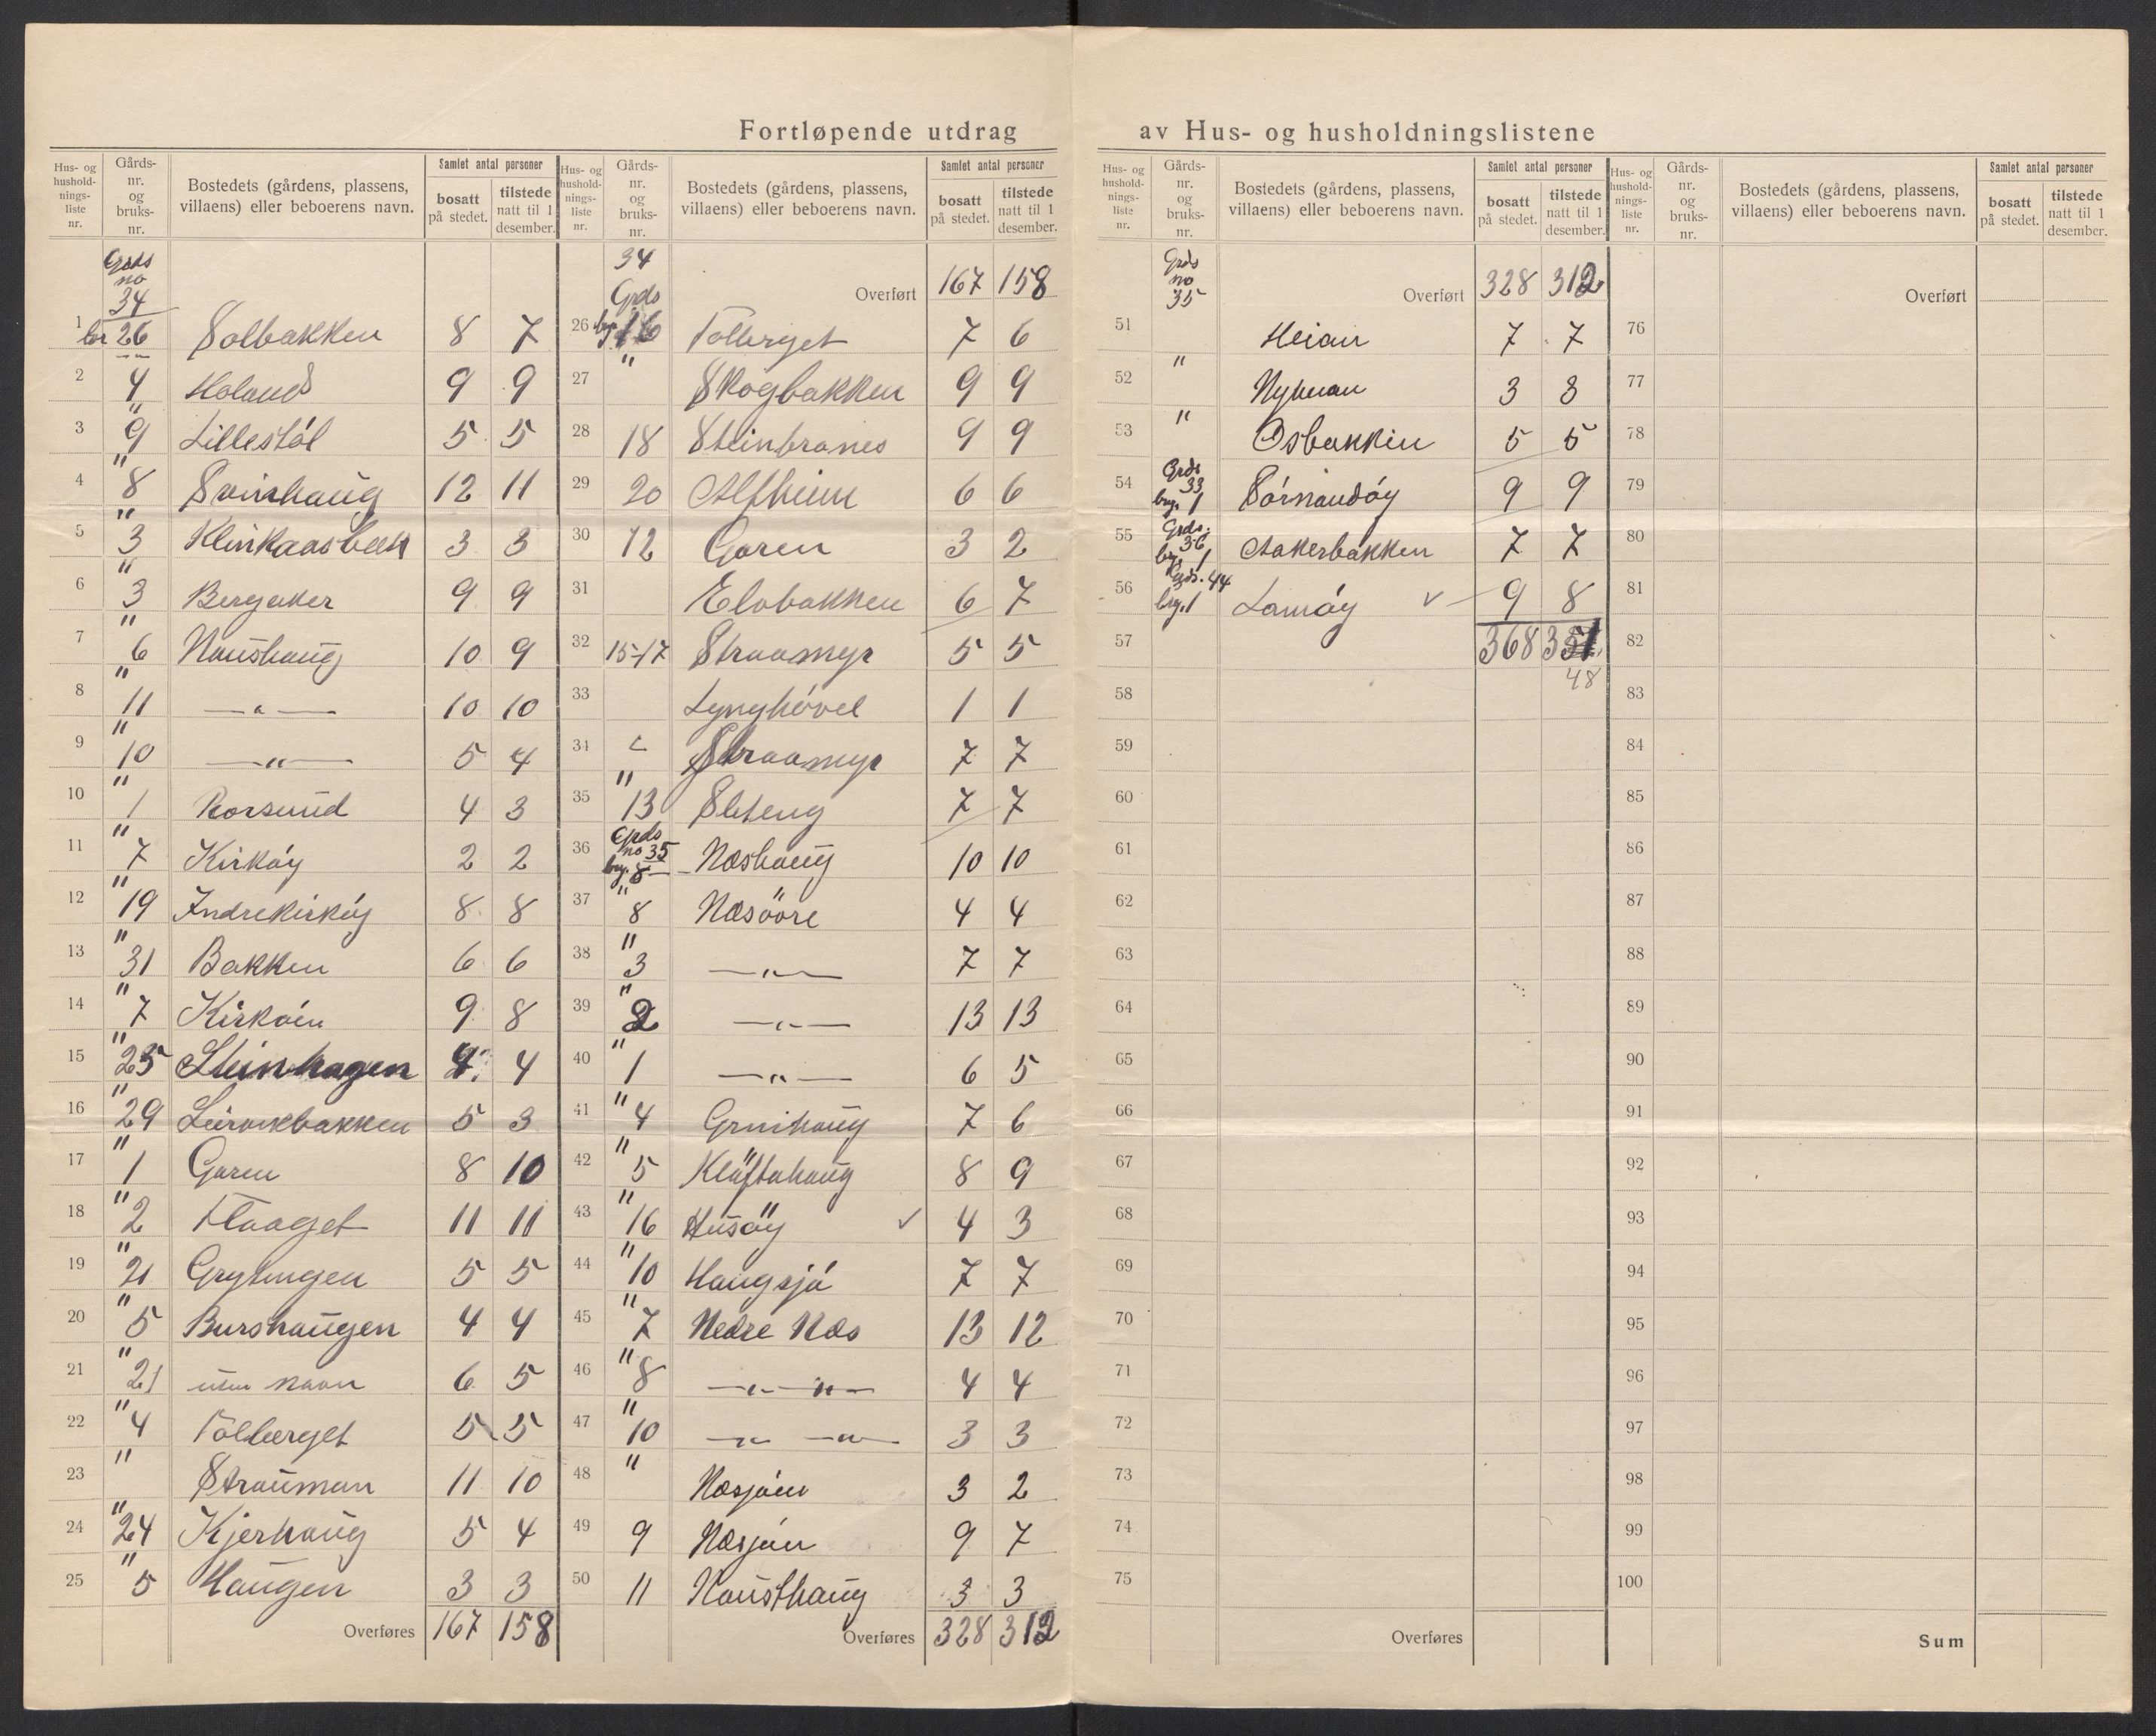 Fortløpende utdrag av Hus- og husholdningslistene
Hus- og hushold-nings-liste nr. | Gårds-nr. og bruks-nr. | Bostedets (gårdens, plassens, villaens) eller beboerens navn. | Samlet antal personer | bosatt på stedet. | tilstede natt til 1 desember.
Grds no 34
1 br 26 Solbakken 8 7
2 " 4 Holand 9 9
3 " 9 Lillestål 5 5
4 " 8 Svinhaug 12 11
5 " 3 3 3
6 " 3 Bergaker 9 9
7 " 6 Naushaug 10 9
8 " 11 —"— 10 10
9 " 10 —"— 5 4
10 " 1 Rorsund 4 3
11 " 7 Kirköy 2 2
12 " 19 Indrekirköy 8 8
13 " 31 Bakken 6 6
14 " 7 Kirköin 9 8
15 " 25 Steinhagen 4 4
16 " 29 Leirvikbakken 5 3
17 " 1 Garen 8 10
18 " 2 Flaaget 11 11
19 " 21 Grytingen 5 5
20 " 5 Burshaugen 4 4
21 " 21 uten navn 6 5
22 " 4 Tolberget 5 5
23 " Strauman 11 10
24 " 24 Kjerhaug 5 4
25 " 5 Haugen 3 3
Overføres 167 158
Hus- og hushold-nings-liste nr. | Gårds-nr. og bruks-nr. | Bostedets (gårdens, plassens, villaens) eller beboerens navn. | Samlet antal personer | bosatt på stedet. | tilstede natt til 1 desember.
34 Grds Overført 167 158
26 brg 16 Tolberget 7 6
27 " Skogbakken 9 9
28 18 Steinbranes 9 9
29 20 Alfheim 6 6
30 12 Garen 3 2
31 Elvbakken 6 7
32 15-17 Straamyr 5 5
33 Lynghövel 1 1
34 " Straamyr 7 7
35 " 13 Sleteng 7 7
36 Grds no 35 brg. 8 Næshaug 10 10
37 " 8 Næsöore 4 4
38 " 3 —"— 7 7
39 " 2 —"— 13 13
40 " 1 —"— 6 5
41 " 4 Grnihaug 7 6
42 " 5 Kläftahaug 8 9
43 " 16 Husöy ✓ 4 3
44 " 10 Haugsjö 7 7
45 " 7 Nedre Næs 13 12
46 " 8 —"— —"— 4 4
47 " 10 —"— —"— 3 3
48 " Næsjöen 3 2
49 9 Næsjöen 9 7
50 11 Nausthaug 3 3
Overføres 328 312
Hus- og hushold-nings-liste nr. | Gårds-nr. og bruks-nr. | Bostedets (gårdens, plassens, villaens) eller beboerens navn. | Samlet antal personer | bosatt på stedet. | tilstede natt til 1 desember.
Grds no 35 Overført 328 312
51 Heian 7 7
52 " Nyheim 3 8
53 " Osbakken 5 5
54 Grds 33 brg. 1 Sörnaudöy 9 9
55 Grds. 36 brg. 1 Aakerbakken 7 7
56 Grds. 44 brg. 1 Lamöy ✓ 9 8
57 368 351
58 48
59
60
61
62
63
64
65
66
67
68
69
70
71
72
73
74
75
Overføres
Hus- og hushold-nings-liste nr. | Gårds-nr. og bruks-nr. | Bostedets (gårdens, plassens, villaens) eller beboerens navn. | Samlet antal personer | bosatt på stedet. | tilstede natt til 1 desember.
Overført
76
77
78
79
80
81
82
83
84
85
86
87
88
89
90
91
92
93
94
95
96
97
98
99
100
Sum